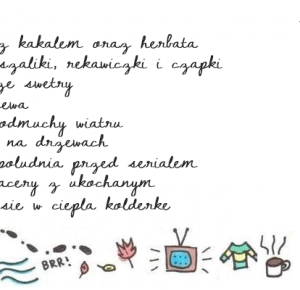 z kakałem oraz herbata
szaliki, rekawiczki i czapki
ze swetry
ewa
odmuchy wiatru
na drzewach
poludnia przed serialem
acery z ukochanym
sie w ciepla kolderke
BRR!